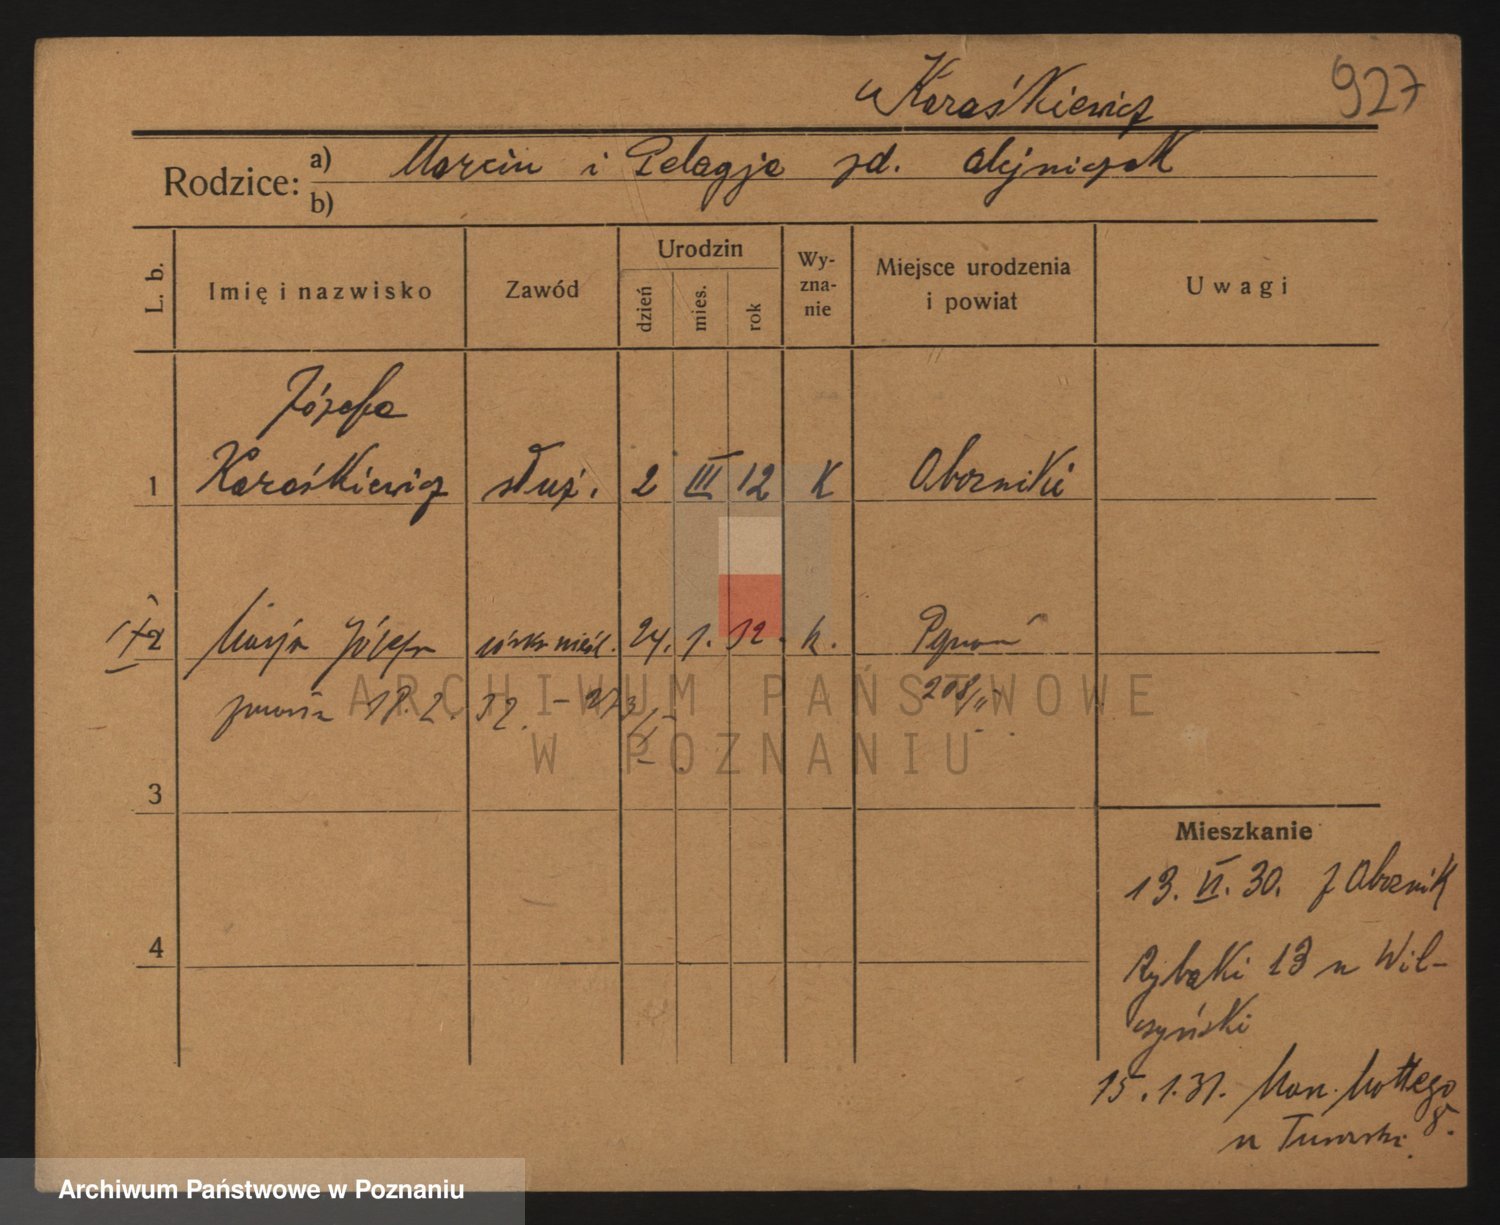 Karaśkiewicz
927
Rodzice: a) Marcin i Pelagja zd. Olejniczak
b)
L. b.
Imię i nazwisko
Zawód
Urodzin
dzień
mies.
rok
Wy-
zna-
nie
Miejsce urodzenia
i powiat
Uwagi
Józefa
1 Karaśkiewicz służ. 2 III 12 K Oborniki
2 Marja Józefa córka nieśl. 24. 1. 32. k. Poznań
zmarła 18. 2. 32. – 273/II 208/II
3
4
Mieszkanie
13. VI. 30. z Obornik
Rybaki 13 u Wil-
czyński
15. 1. 31. Mottego 8.
u
ARCHIWUM PAŃSTWOWE
W POZNANIU
Archiwum Państwowe w Poznaniu